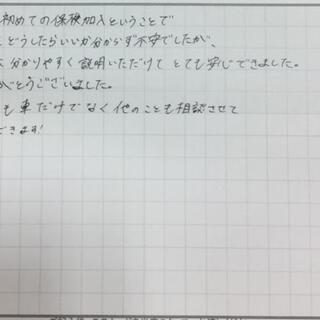 初めての保険加入ということで
どうしたらいいか分からず不安でしたが、
分かりやすく説明いただけて とても安心できました。
がとうございました。
も車だけでなく他のことも相談させて
できます!